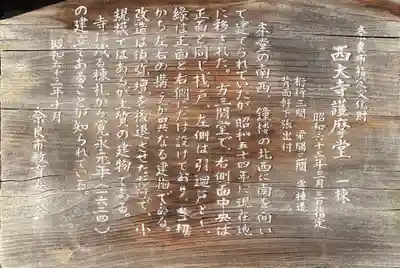 奈良市指定文化財
西大寺護摩堂　一棟
昭和六十三年三月三日指定
桁行三間　梁間三間　宝形造
背面軒下張出付
本堂の南西　鐘楼の北西に南を向い
て建てられていたが昭和五十四年に現在地
に移された。方三間堂で、右側面中央は
正面と同じ桟戸、左側は引違戸とし
縁は正面と右側だけ設けており、当初
から左右の構えが異なる建物である。
改造は須弥壇を後退させた程度で、小
規模ではあるが上質の建物である。
寺に残る棟札から寛永元年(一六二四)
の建立であることが知られている。
昭和六十三年十月
奈良市教育委